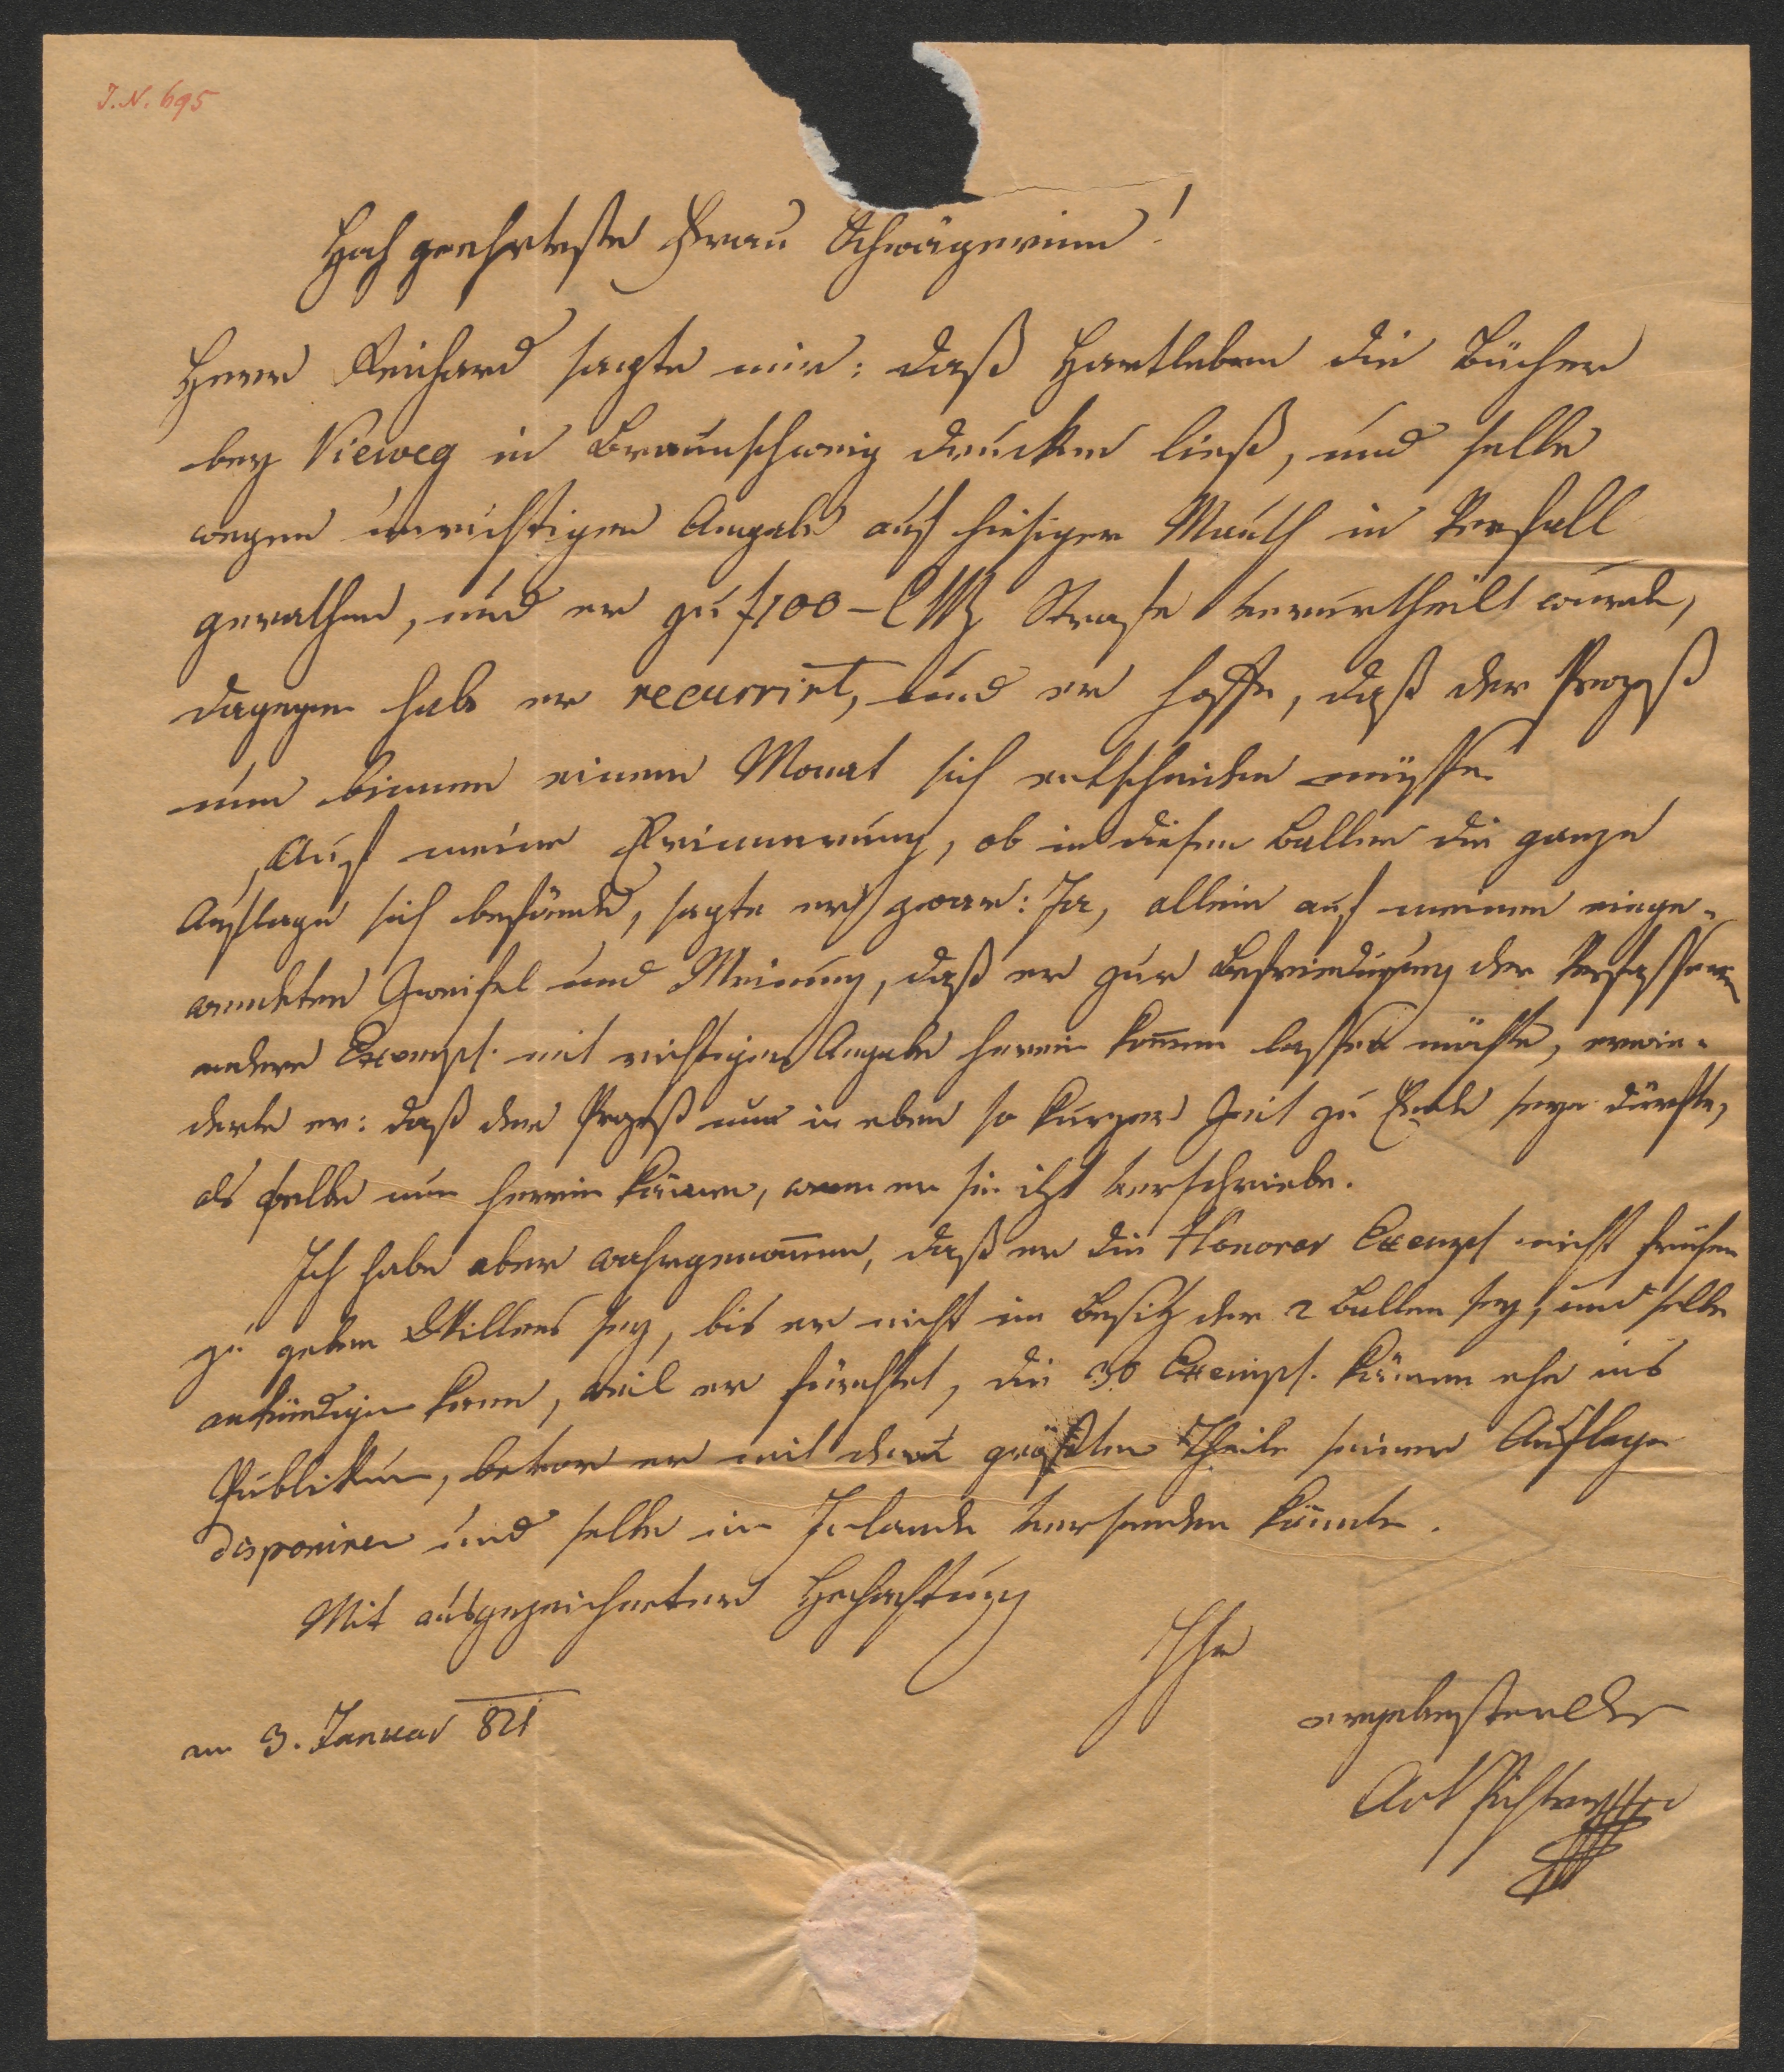 J. N. 695
Hochgeehrteste Frau Schwägerinn!
Herr Reichard sagte mir: daß Hartleben die Bücher
bey Vieweg in Braunschweig drucken ließ, und selbe
wegen unrichtigen Angabe auf hiesiger Mauth in Verfall
gerathen, und er zu f100 – CMz Strafe verurtheilt wurde,
dagegen habe er recurrirt, und er hoffe, daß der Prozeß
nun binnen einem Monat sich entscheiden müsse.
Auf meine Erinnerung, ob in diesen Ballen die ganze
Auflage sich befände, sagte er zwar: Ja, allein auf meinen einge-
wendeten Zweifel und Meinung, daß er zur Befriedigung der Verfasserin
andere Exempl. mit richtigen Angabe herein kom̄en lassen möchte, erwie-
derte er: daß der Prozeß nun in eben so kurzer Zeit zu Ende seyn dürfte,
als selbe nun herein kämen, wenn er sie itzt verschriebe.
Ich habe aber wahrgenom̄en, daß er die Honorar Exempl nicht früher
zu geben Willens sey, bis er nicht im Besitz der 2 Ballen sey, und selbe
ankündigen kann, weil er fürchtet, die 30 Exempl. kämen ehe ins
Publikum, bevor er mit dem größten Theile seiner Auflage
disponiren und selbe im Inlande versenden könnte.
Mit ausgezeichneter Hochachtung
Ihr
am 3. Januar 821
ergebenster Dr
Ant